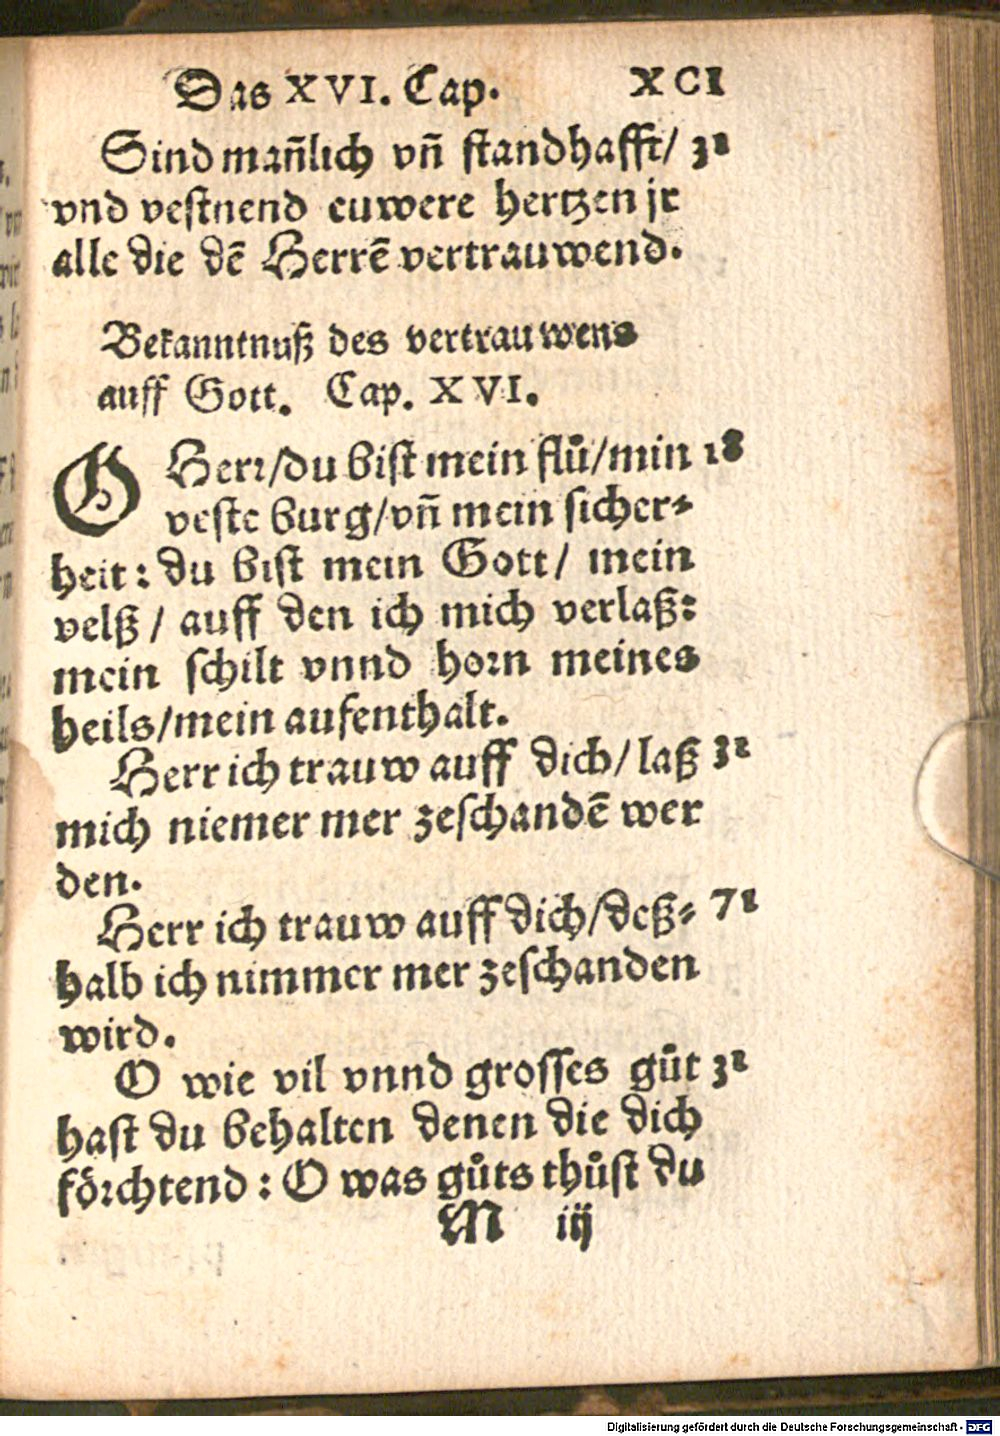 Das XVI. Cap. XCI
Sind mañlich vñ standhafft/ 31
vnd vestnend euwere hertzen jr
alle die dē Herrē vertrauwend.
Bekanntnuß des vertrauwens
auff Gott. Cap. XVI.
O Herr/du bist mein flů/min 18
veste burg/vñ mein sicher⸗
heit: du bist mein Gott/ mein
velß/ auff den ich mich verlaß:
mein schilt vnnd horn meines
heils/mein aufenthalt.
Herr ich trauw auff dich/ laß 31
mich niemer mer zeschandē wer
den.
Herr ich trauw auff dich/deß⸗ 71
halb ich nimmer mer zeschanden
wird.
O wie vil vnnd grosses gůt 31
hast du behalten denen die dich
förchtend: O was gůts thůst du
M iij
Digitalisierung gefördert durch die Deutsche Forschungsgemeinschaft - DFG